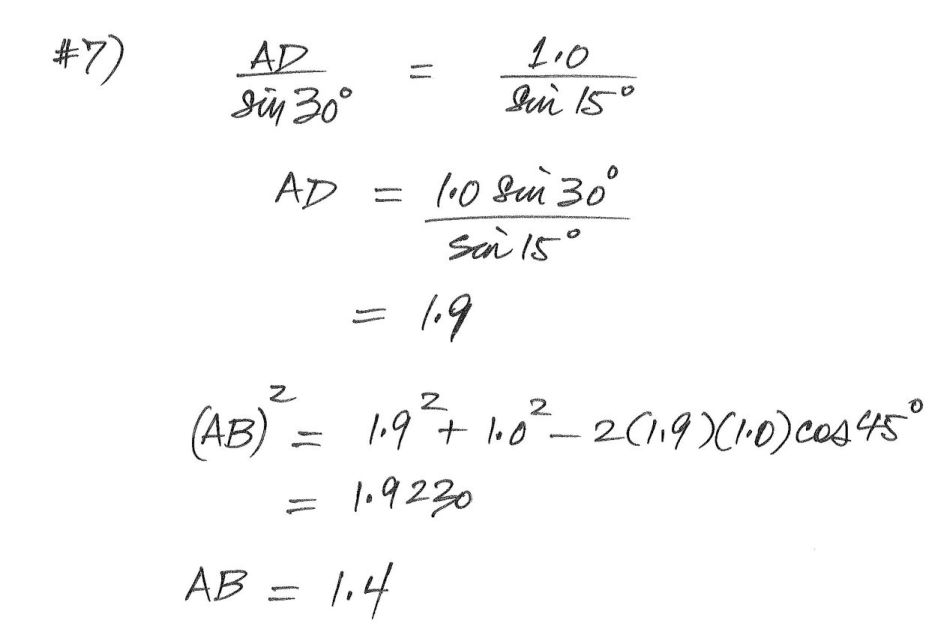 #7) AD/sin 30° = 1.0/sin 15°
AD = 1.0 sin 30°/sin 15°
= 1.9
(AB)² = 1.9² + 1.0² − 2(1.9)(1.0)cos 45°
= 1.9230
AB = 1.4